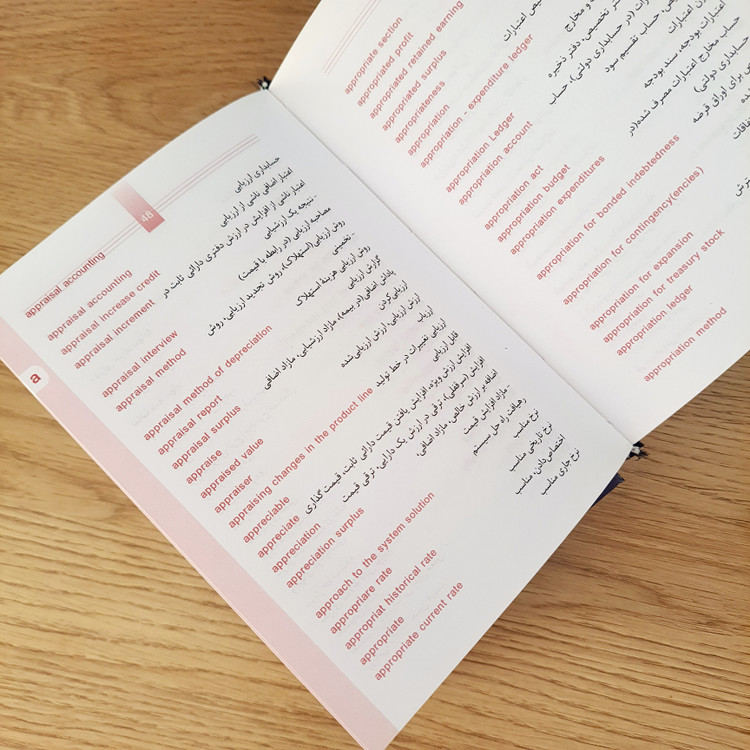 48
appraisal accounting
appraisal accounting حسابداری ارزیابی
appraisal increase credit اعتبار اضافی ناشی از ارزیابی
appraisal increment اعتبار ناشی از افزایش در ارزش دفتری دارائی ثابت در
نتیجه یک ارزشیابی
appraisal interview مصاحبه ارزیابی (در رابطه با قیمت)
appraisal method روش ارزیابی(استهلاک)، روش تجدید ارزیابی، روش
تخمینی
appraisal method of depreciation روش ارزیابی هزینه استهلاک
appraisal report گزارش ارزیابی
appraisal surplus پاداش اضافی(در بیمه)، مازاد ارزشیابی، مازاد اضافی
appraise ارزیابی‌کردن
appraised value ارزش ارزیابی، ارزش ارزیابی شده
appraiser ارزیاب
appraising changes in the product line ارزیابی تغییرات در خط تولید
appreciable قابل ارزیابی
appreciate افزایش ارزش ویژه، افزایش یافتن قیمت دارائی ثابت، قیمت گذاری
appreciation افزایش (سرقفلی)، ترقی در ارزش یک دارایی، ترقی قیمت
appreciation surplus اضافه بر ارزش خالص، مازاد اضافی،
مازاد افزایش قیمت
approach to the system solution رهیافت راه حل سیستم
appropriare rate نرخ مناسب
appropriat historical rate نرخ تاریخی مناسب
appropriate اختصاص‌دادن، مناسب
appropriate current rate نرخ جاری مناسب
appropriate section
appropriated profit
appropriated retained earning
appropriated surplus
appropriateness
appropriation
appropriation - expenditure ledger
appropriation Ledger
appropriation account
appropriation act
appropriation budget
appropriation expenditures
appropriation for bonded indebtedness
appropriation for contingency(encies)
appropriation for expansion
appropriation for treasury stock
appropriation ledger
appropriation method